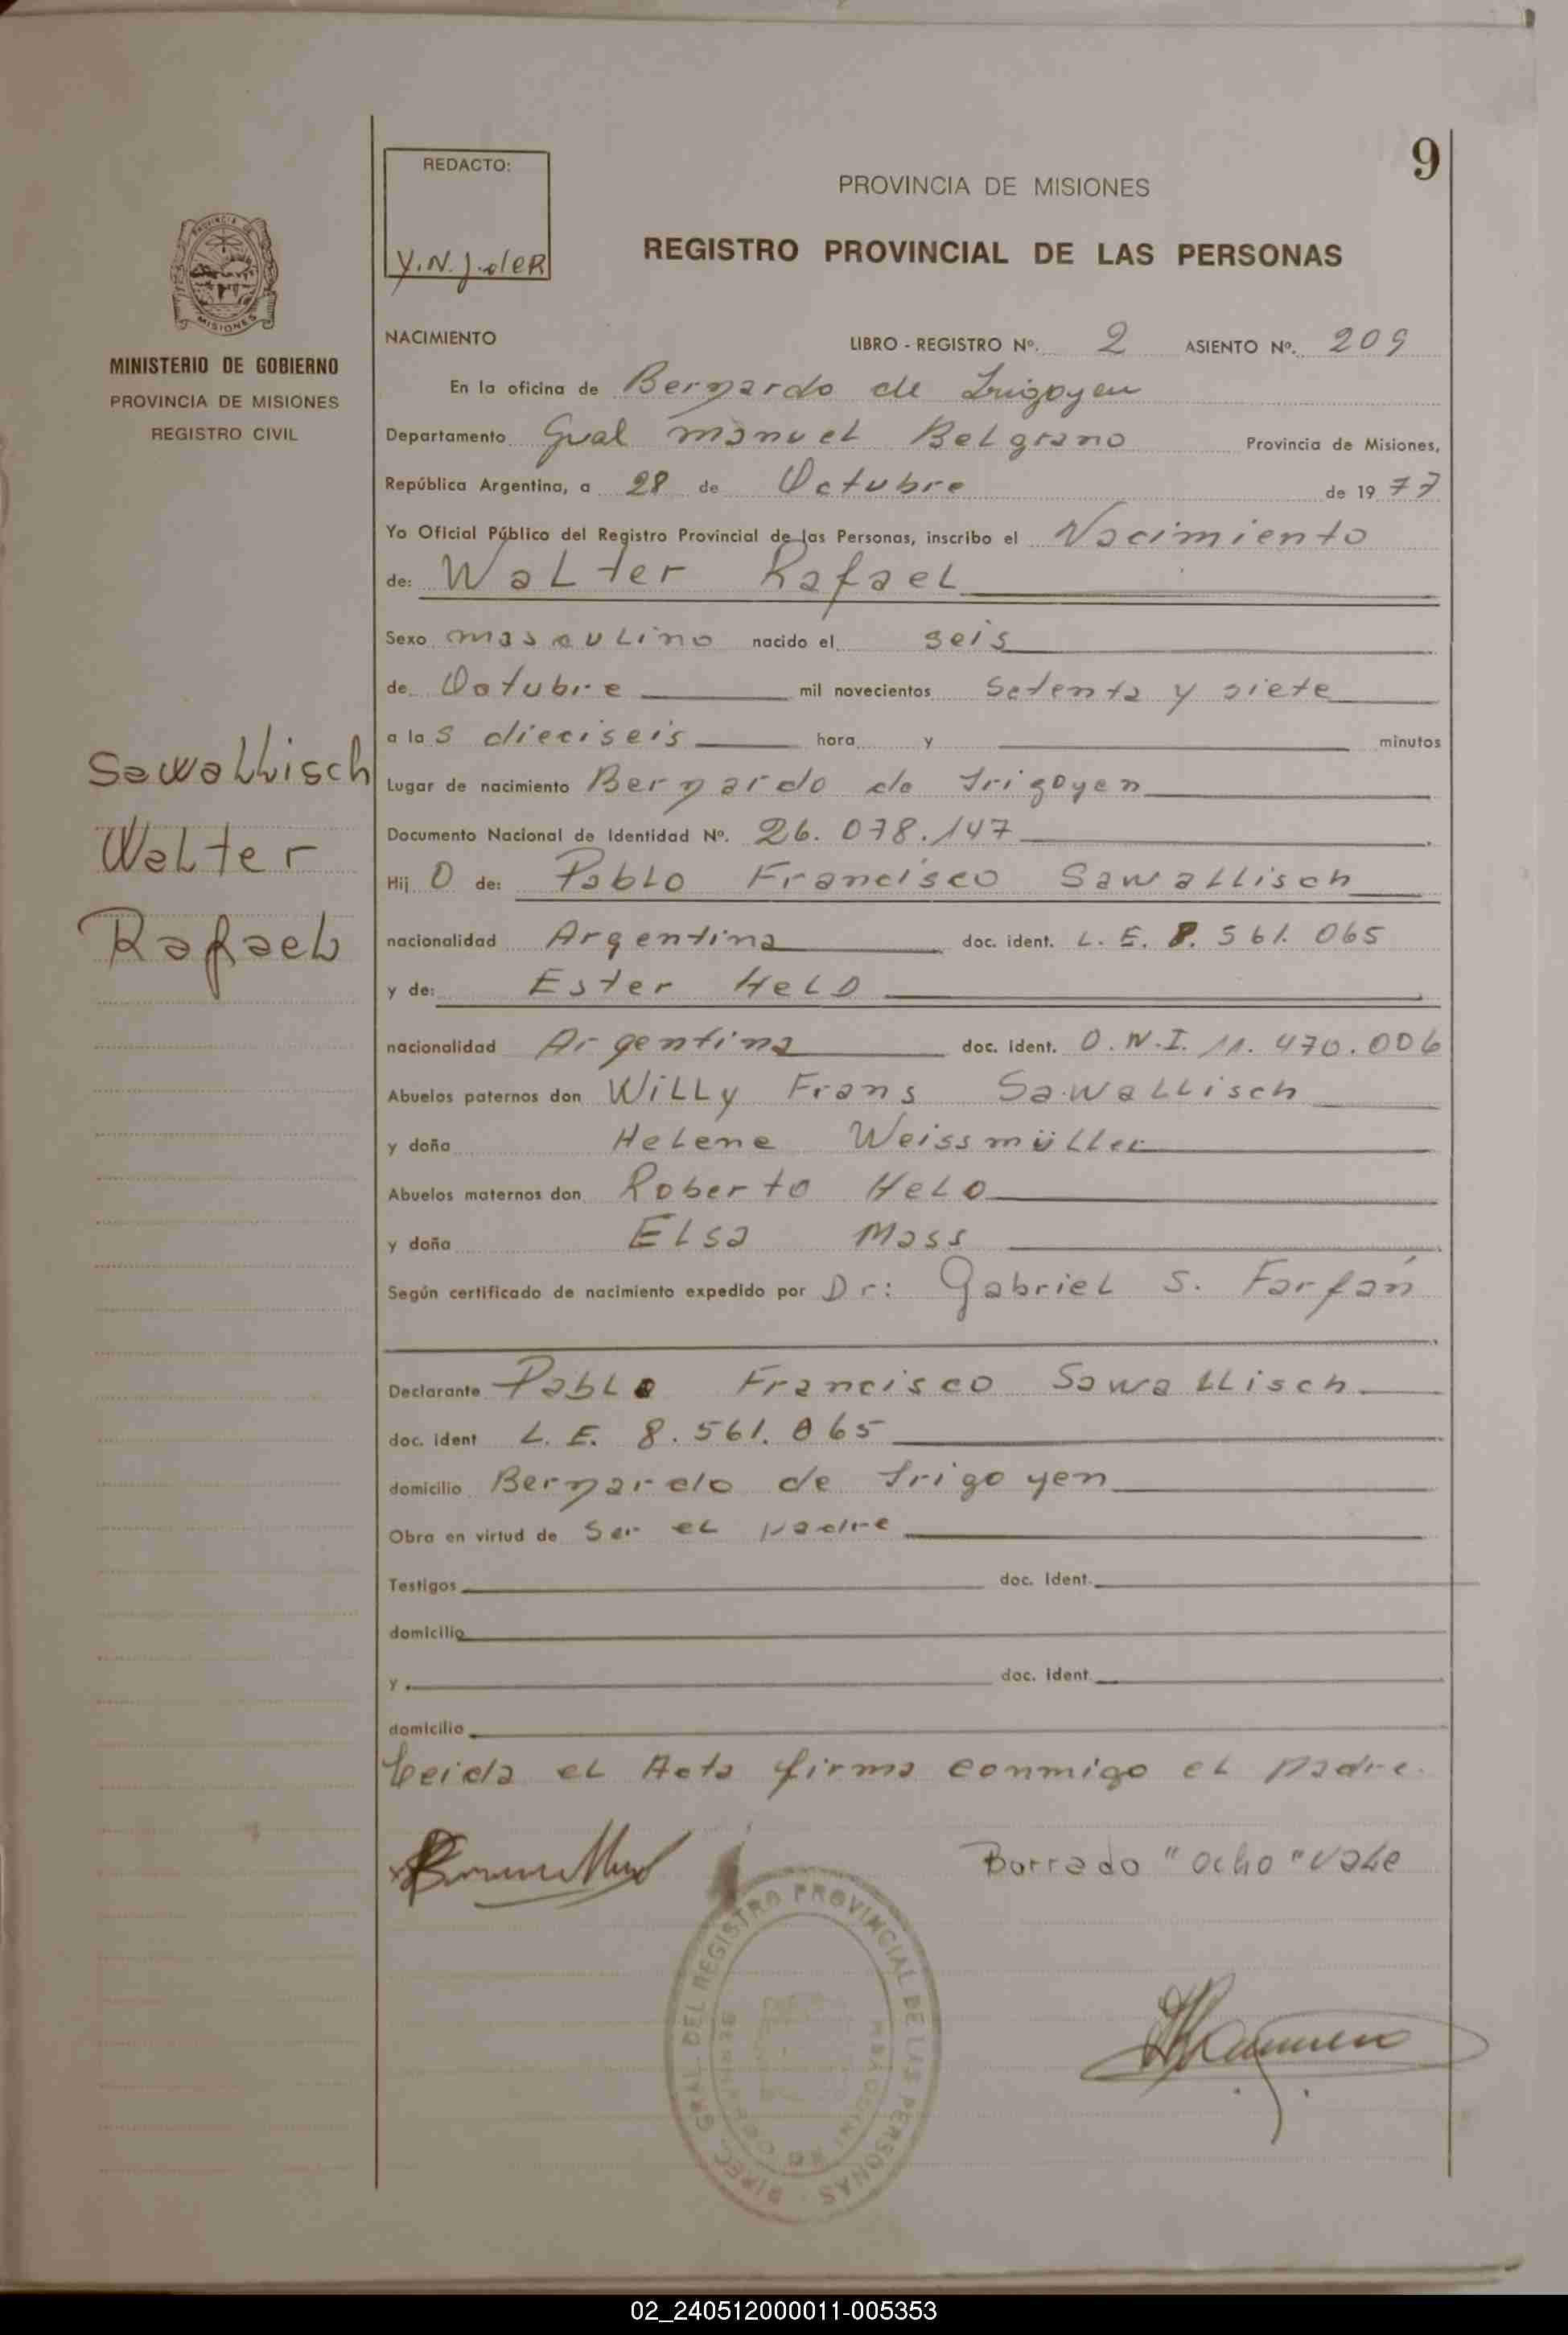 9
REDACTO:
PROVINCIA DE MISIONES
REGISTRO PROVINCIAL DE LAS PERSONAS
PROVINCIA DE
MISIONES
MINISTERIO DE GOBIERNO
PROVINCIA DE MISIONES
REGISTRO CIVIL
NACIMIENTO LIBRO - REGISTRO Nº. 2 ASIENTO Nº. 209
En la oficina de Bernardo de Irigoyen
Departamento Gral Manuel Belgrano Provincia de Misiones,
República Argentina, a 28 de Octubre de 19 77
Yo Oficial Público del Registro Provincial de las Personas, inscribo el Nacimiento
de: Walter Rafael
Sexo masculino nacido el seis
de Octubre mil novecientos Setenta y siete
a la s dieciseis hora y minutos
Sawallisch
Walter
Rafael
Lugar de nacimiento Bernardo de Irigoyen
Documento Nacional de Identidad Nº. 26.078.147
Hij O de: Pablo Francisco Sawallisch
nacionalidad Argentina doc. ident. L. E. 8. 561. 065
y de: Ester Held
nacionalidad Argentina doc. ident. D.N.I. 11. 470.006
Abuelos paternos don Willy Frans Sawallisch
y doña Helene Weissmüller
Abuelos maternos don Roberto Held
y doña Elsa Mass
Según certificado de nacimiento expedido por Dr: Gabriel S. Farfán
Declarante Pablo Francisco Sawallisch
doc. ident L. E. 8. 561. 065
domicilio Bernardo de Irigoyen
Obra en virtud de Ser el padre
Testigos doc. ident.
domicilio
y doc. ident.
domicilio
Leida el Acta firma conmigo el padre.
Borrado "ocho" vale
DIREC. GRAL. DEL REGISTRO PROVINCIAL DE LAS PERSONAS
02_240512000011-005353